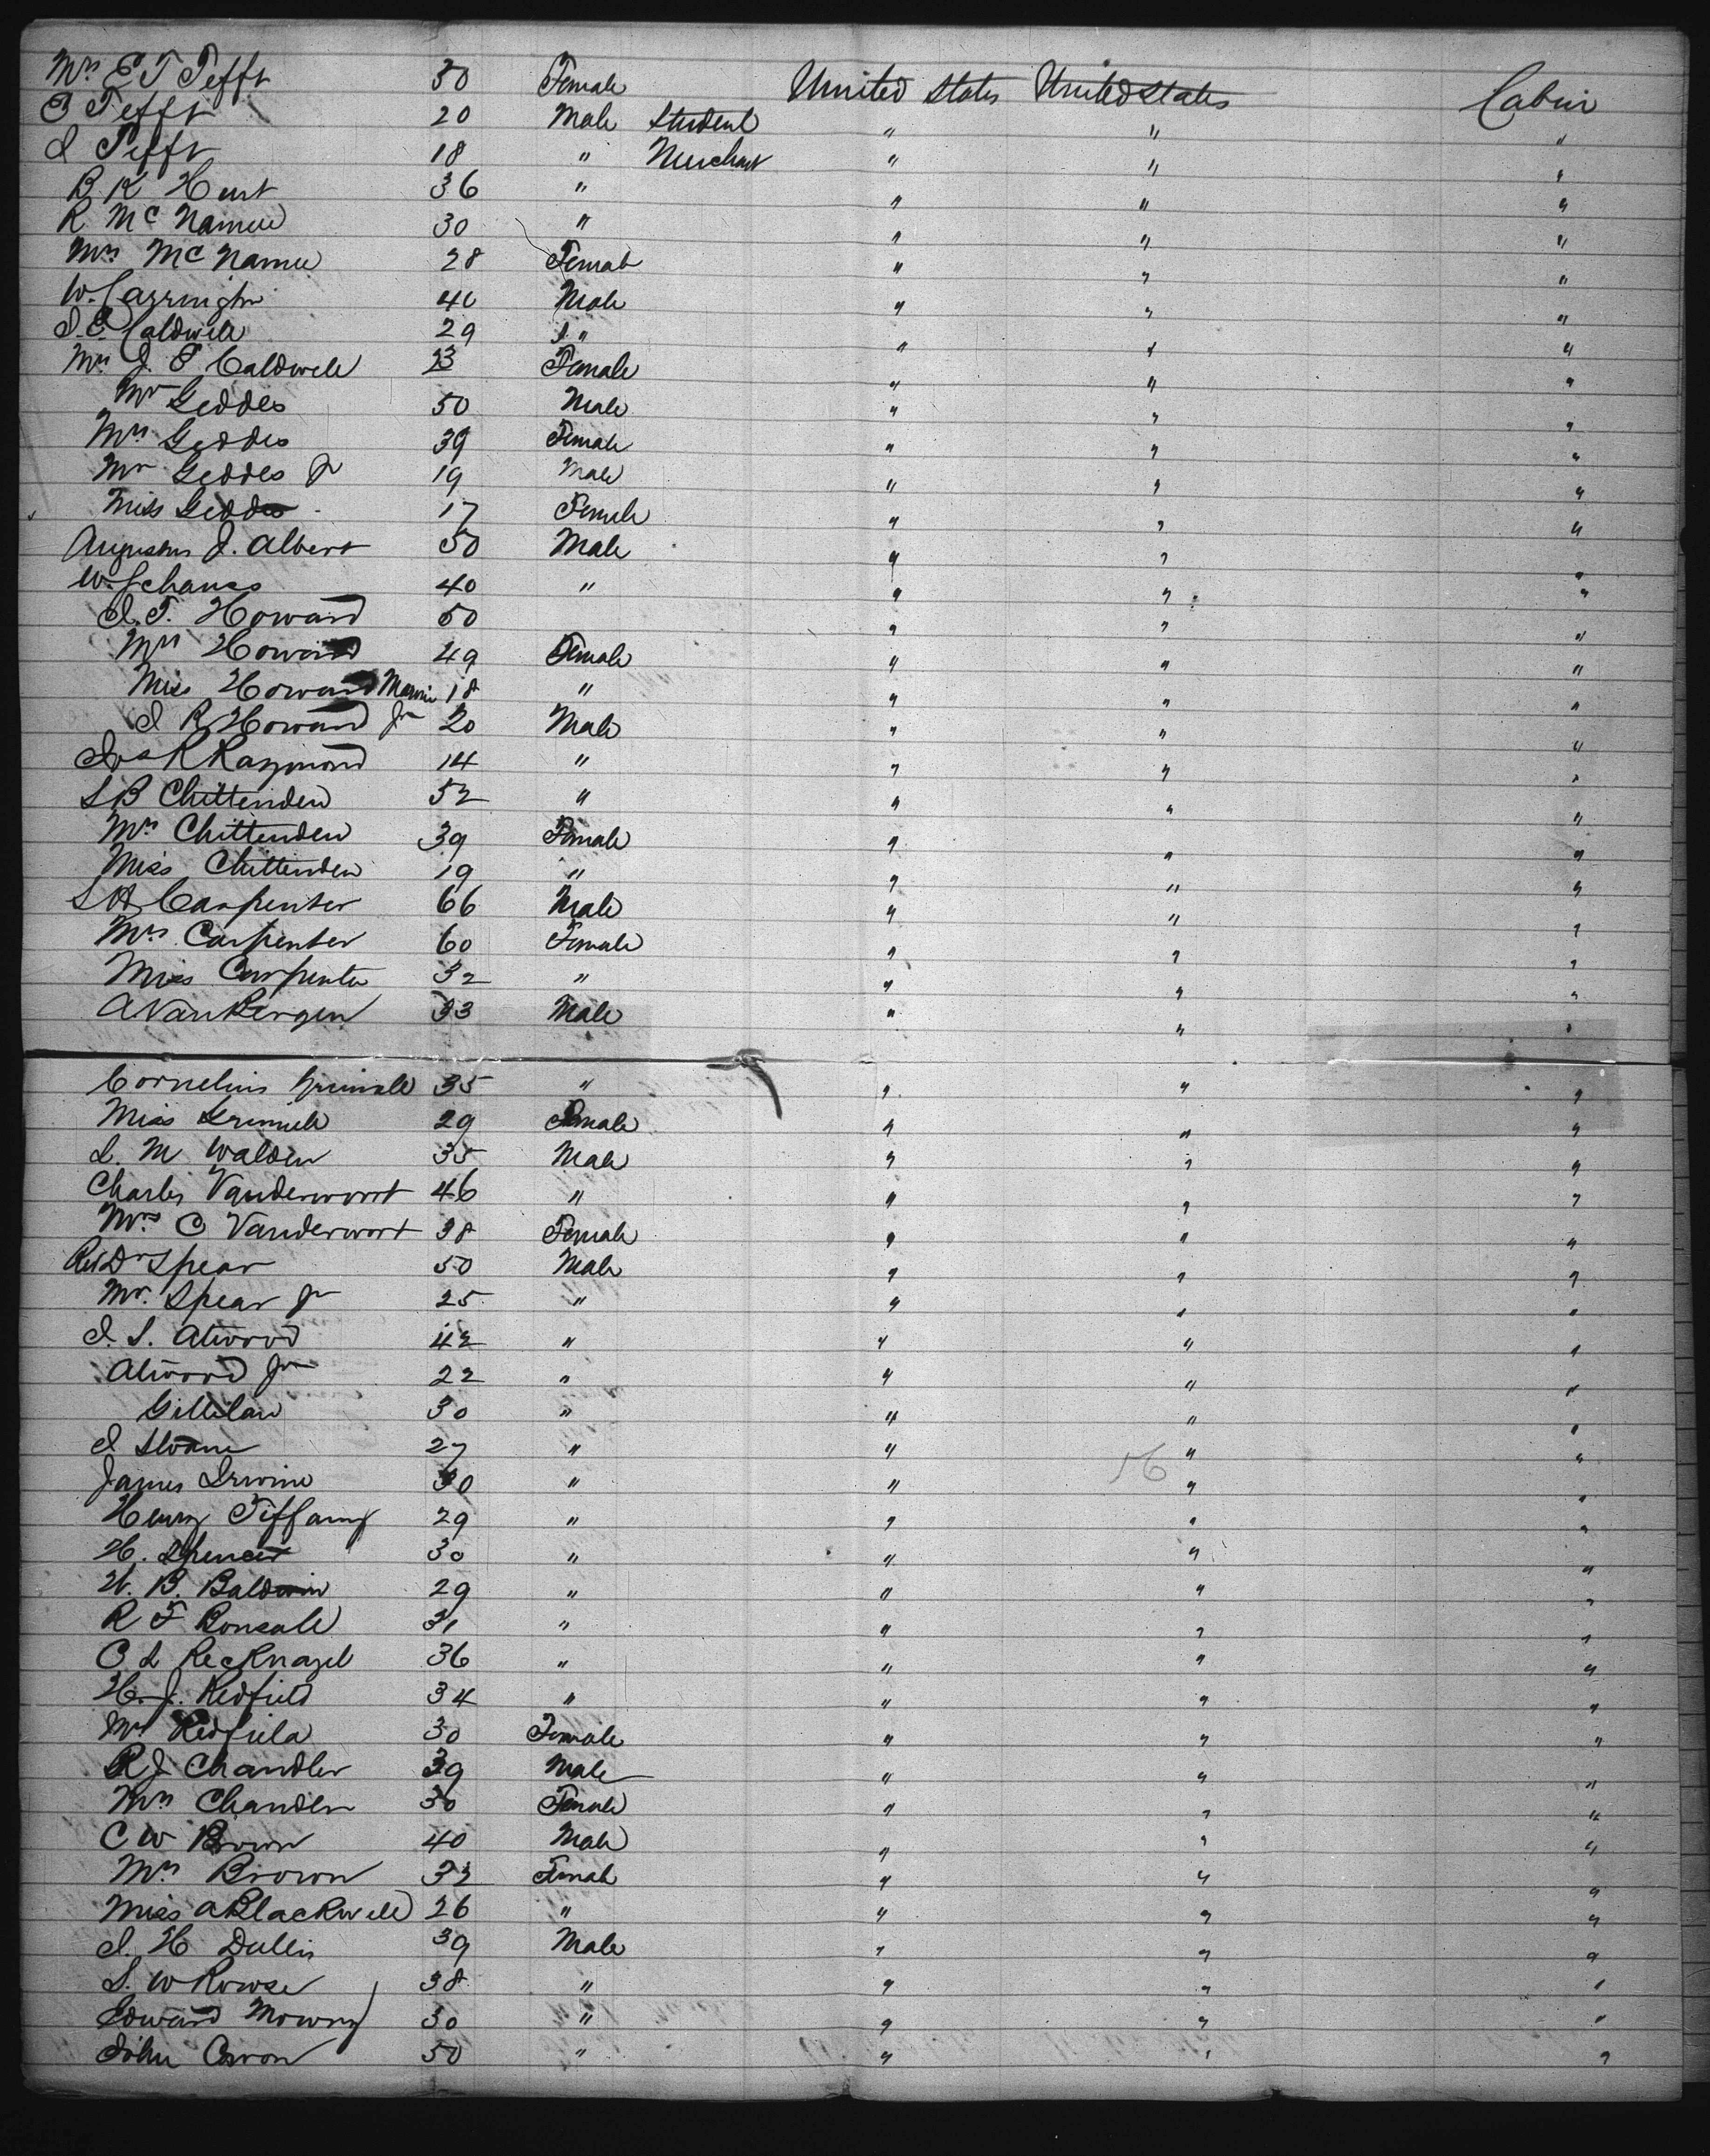 Mrs E T Tefft 30 Female United States United States Cabin
E Tefft 20 Male Student " " "
I Tefft 18 " Merchant " " "
B. K Hunt 36 " " " "
R McNamee 30 " " " "
Mrs McNamee 28 Female " " "
W. Carrington 40 Male " " "
J. E. Caldwell 29 " " " "
Mrs J. E Caldwell 23 Female " " "
Mr Geddes 50 Male " " "
Mrs Geddes 39 Female " " "
Mr Geddes Jr 19 Male " " "
Miss Geddes 17 Female " " "
Augustus J. Albert 50 Male " " "
W. Schaus 40 " " " "
J. T. Howard 50 " " "
Mrs Howard 49 Female " " "
Miss Howard 18 " " " "
J R Howard Jr 20 Male " " "
R Raymond 14 " " " "
S B Chittenden 52 " " " "
Mrs Chittenden 39 Female " " "
Miss Chittenden 19 " " " "
Carpenter 66 Male " " "
Mrs Carpenter 60 Female " " "
Miss Carpenter 32 " " " "
A Van Bergen 33 Male " " "
Cornelius Grinnell 35 " " " "
Miss Grinnell 29 Female " " "
J. M Walden 35 Male " " "
Charles Vanderwoort 46 " " " "
Mrs C Vanderwort 38 Female " " "
Rev Dr Spear 50 Male " " "
Mr. Spear Jr 25 " " " "
J. S. Atwood 42 " " " "
Atwood Jr 22 " " " "
Gillilan 30 " " " "
J Sloane 27 " " " "
56
James Irwine 30 " " " "
Henry Tiffany 29 " " " "
H. Spencer 30 " " " "
H. B. Baldwin 29 " " " "
R F Bonsall 31 " " " "
C L Recknagel 36 " " " "
H. J. Redfield 34 " " " "
Mrs Redfield 30 Female " " "
R J Chandler 39 Male " " "
Mrs Chandler 30 Female " " "
C W Brown 40 Male " " "
Mrs Brown 32 Female " " "
Miss A Blackwell 26 " " " "
J. H Dullis 39 Male " " "
S. W Rowse 38 " " " "
Edward Mowry 30 " " " "
John Caron 50 " " " "